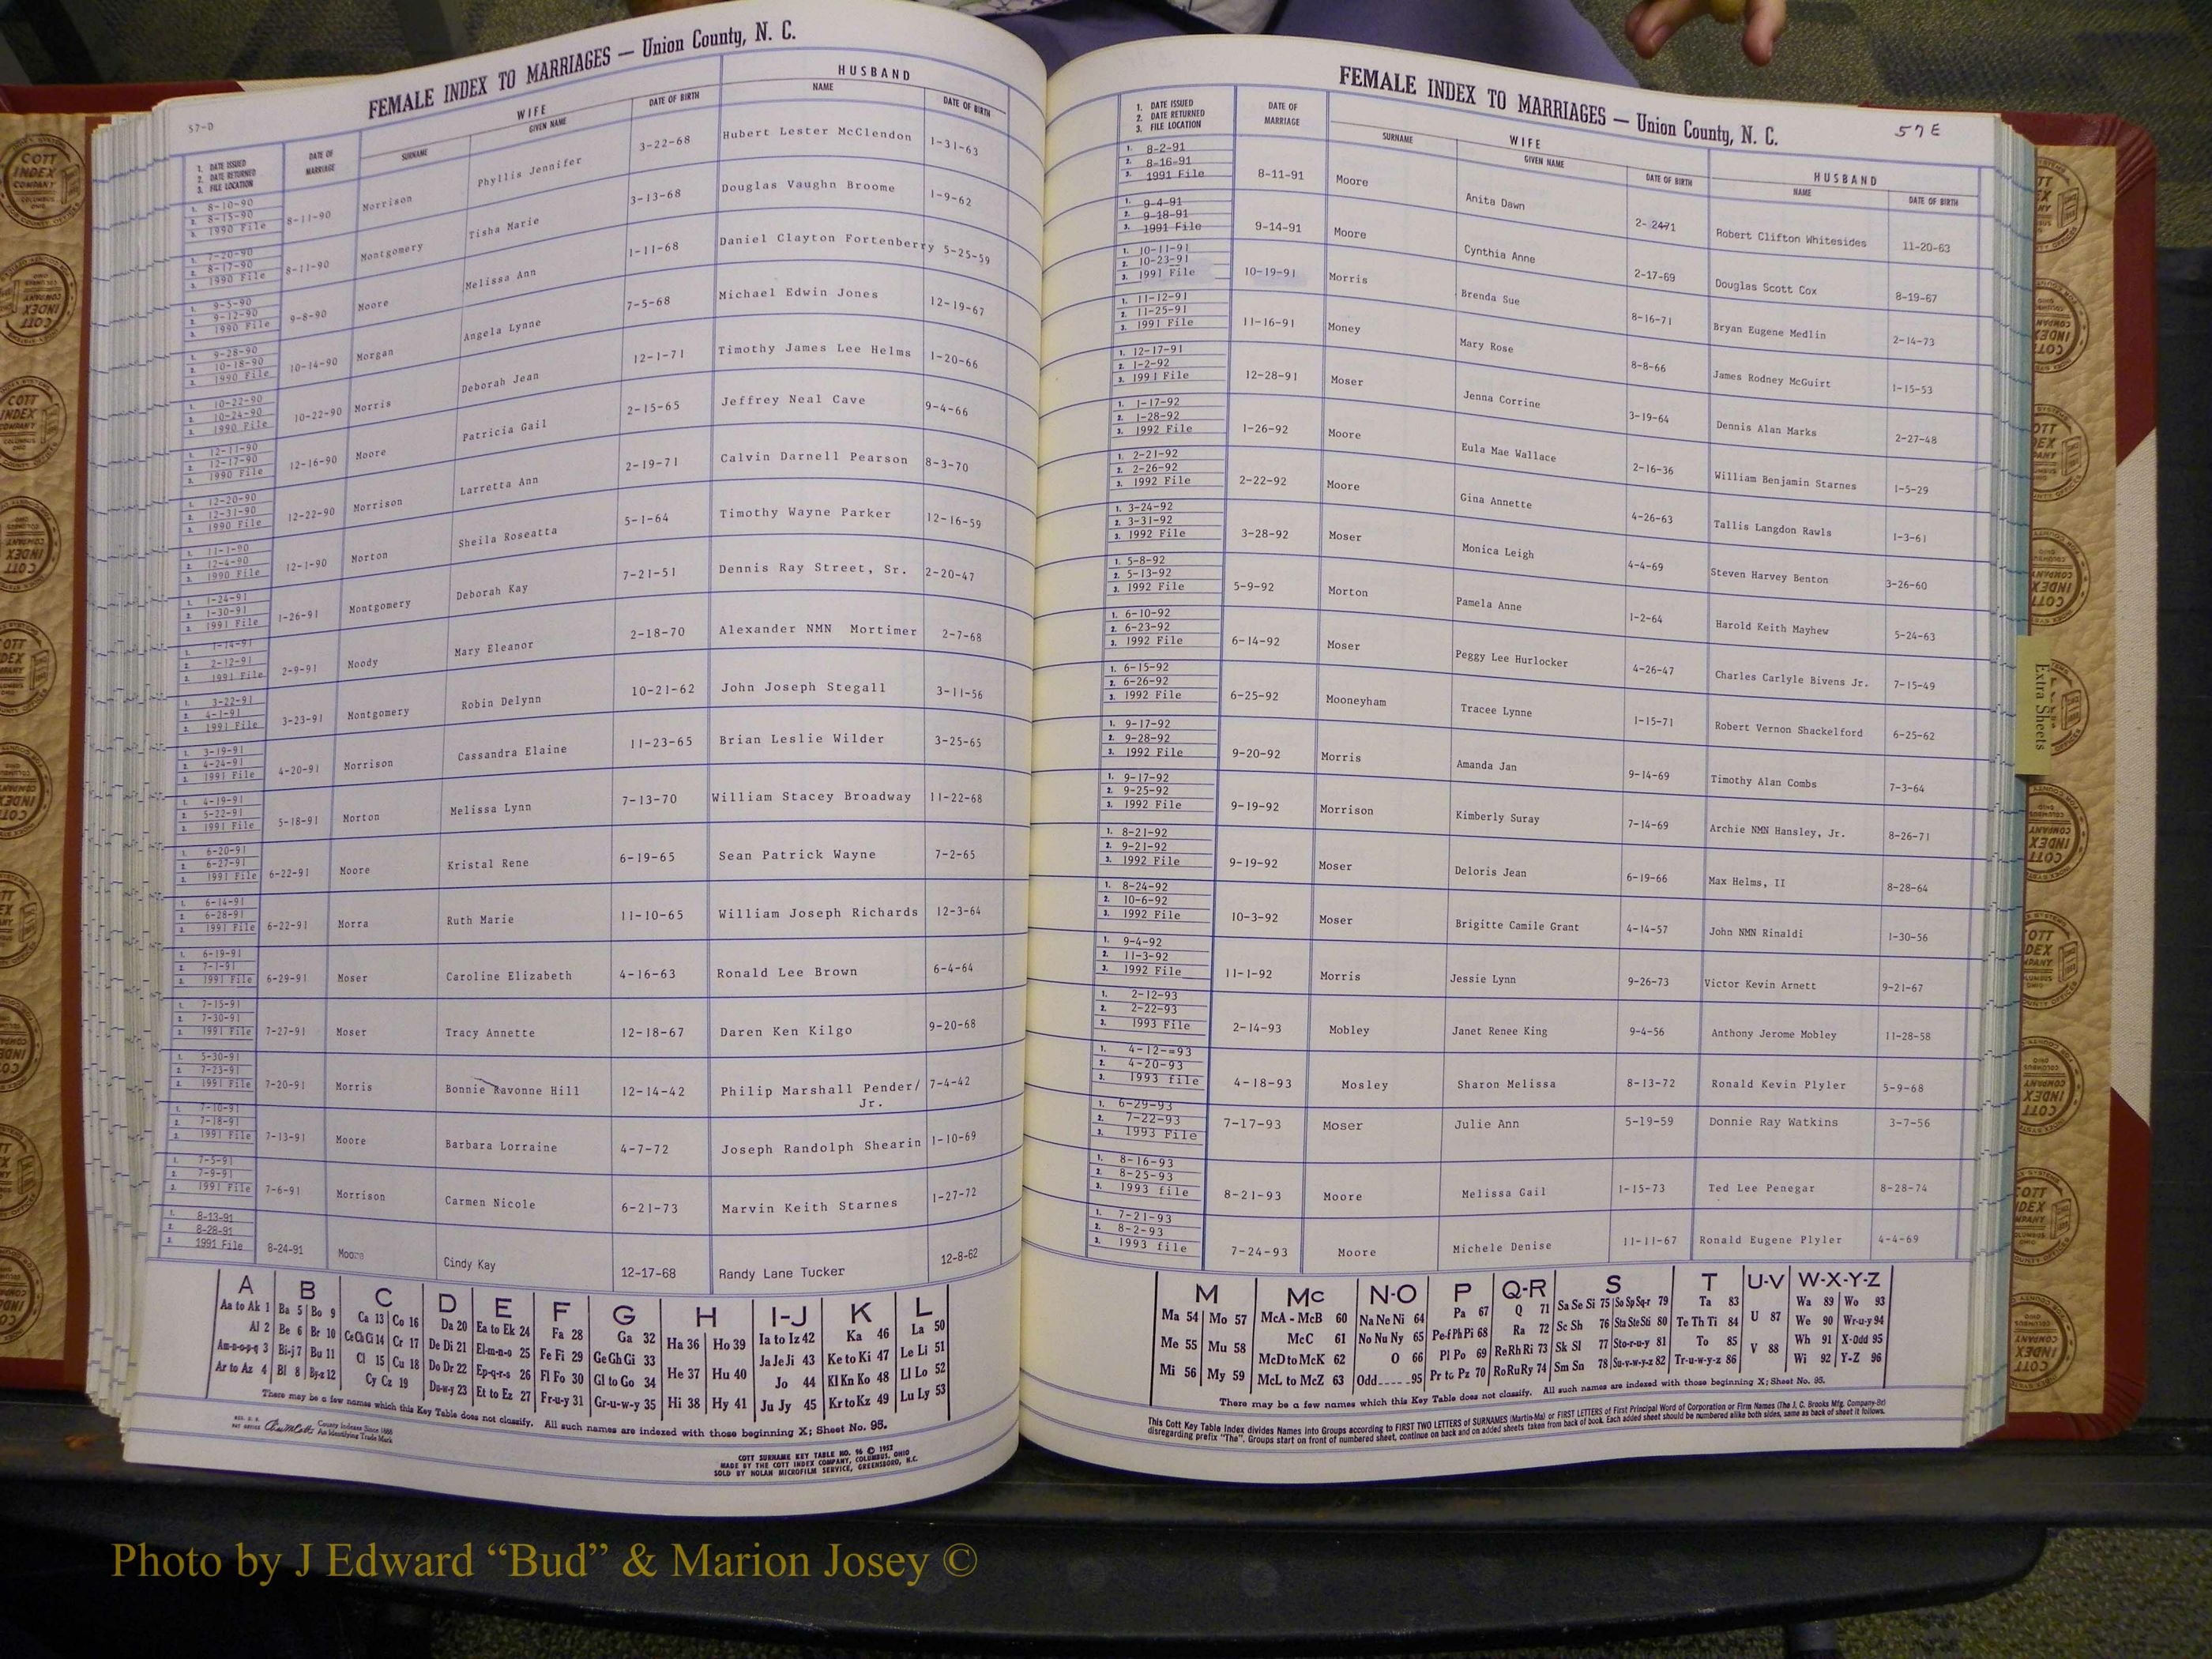 57-D
FEMALE INDEX TO MARRIAGES — Union County, N. C.
WIFE
HUSBAND
1. DATE ISSUED
2. DATE RETURNED
3. FILE LOCATION
DATE OF MARRIAGE
SURNAME
GIVEN NAME
DATE OF BIRTH
NAME
DATE OF BIRTH
1. 8-10-90
2. 8-15-90
3. 1990 File
8-11-90 Morrison Phyllis Jennifer 3-22-68 Hubert Lester McClendon 1-31-63
1. 7-20-90
2. 8-17-90
3. 1990 File
8-11-90 Montgomery Tisha Marie 3-13-68 Douglas Vaughn Broome 1-9-62
1. 9-5-90
2. 9-12-90
3. 1990 File
9-8-90 Moore Melissa Ann 1-11-68 Daniel Clayton Fortenberry 5-25-59
1. 9-28-90
2. 10-18-90
3. 1990 File
10-14-90 Morgan Angela Lynne 7-5-68 Michael Edwin Jones 12-19-67
1. 10-22-90
2. 10-24-90
3. 1990 File
10-22-90 Morris Deborah Jean 12-1-71 Timothy James Lee Helms 1-20-66
1. 12-11-90
2. 12-17-90
3. 1990 File
12-16-90 Moore Patricia Gail 2-15-65 Jeffrey Neal Cave 9-4-66
1. 12-20-90
2. 12-31-90
3. 1990 File
12-22-90 Morrison Larretta Ann 2-19-71 Calvin Darnell Pearson 8-3-70
1. 11-1-90
2. 12-4-90
3. 1990 File
12-1-90 Morton Sheila Roseatta 5-1-64 Timothy Wayne Parker 12-16-59
1. 1-24-91
2. 1-30-91
3. 1991 File
1-26-91 Montgomery Deborah Kay 7-21-51 Dennis Ray Street, Sr. 2-20-47
1. 1-14-91
2. 2-12-91
3. 1991 File
2-9-91 Moody Mary Eleanor 2-18-70 Alexander NMN Mortimer 2-7-68
1. 3-22-91
2. 4-1-91
3. 1991 File
3-23-91 Montgomery Robin Delynn 10-21-62 John Joseph Stegall 3-11-56
1. 3-19-91
2. 4-24-91
3. 1991 File
4-20-91 Morrison Cassandra Elaine 11-23-65 Brian Leslie Wilder 3-25-65
1. 4-19-91
2. 5-22-91
3. 1991 File
5-18-91 Morton Melissa Lynn 7-13-70 William Stacey Broadway 11-22-68
1. 6-20-91
2. 6-27-91
3. 1991 File
6-22-91 Moore Kristal Rene 6-19-65 Sean Patrick Wayne 7-2-65
1. 6-14-91
2. 6-28-91
3. 1991 File
6-22-91 Morra Ruth Marie 11-10-65 William Joseph Richards 12-3-64
1. 6-19-91
2. 7-1-91
3. 1991 File
6-29-91 Moser Caroline Elizabeth 4-16-63 Ronald Lee Brown 6-4-64
1. 7-15-91
2. 7-30-91
3. 1991 File
7-27-91 Moser Tracy Annette 12-18-67 Daren Ken Kilgo 9-20-68
1. 5-30-91
2. 7-23-91
3. 1991 File
7-20-91 Morris Bonnie Ravonne Hill 12-14-42 Philip Marshall Pender/ 7-4-42
Jr.
1. 7-10-91
2. 7-18-91
3. 1991 File
7-13-91 Moore Barbara Lorraine 4-7-72 Joseph Randolph Shearin 1-10-69
1. 7-5-91
2. 7-9-91
3. 1991 File
7-6-91 Morrison Carmen Nicole 6-21-73 Marvin Keith Starnes 1-27-72
1. 8-13-91
2. 8-28-91
3. 1991 File
8-24-91 Moore Cindy Kay 12-17-68 Randy Lane Tucker 12-8-62
A B C D E F G H I-J K L
Aa to Ak 1 Ba 5 Bo 9 Ca 13 Co 16 Da 20 Ea to Ek 24 Fa 28 Ga 32 Ha 36 Ho 39 Ia to Iz 42 Ka 46 La 50
Al 2 Be 6 Br 10 Ce Ch Ci 14 Cr 17 De Di 21 El-m-n-o 25 Fe Fi 29 Ge Gh Gi 33 He 37 Hu 40 Ja Je Ji 43 Ke to Ki 47 Le Li 51
Am-n-o-p-q 3 Bi-j 7 Bu 11 Cl 15 Cu 18 Do Dr 22 Ep-q-r-s 26 Fl Fo 30 Gl to Go 34 Hi 38 Hy 41 Jo 44 Kl Kn Ko 48 Ll Lo 52
Ar to Az 4 Bl 8 By-z 12 Cy Cz 19 Du-w-y 23 Et to Ez 27 Fr-u-y 31 Gr-u-w-y 35 Ju Jy 45 Kr to Kz 49 Lu Ly 53
There may be a few names which this Key Table does not classify. All such names are indexed with those beginning X; Sheet No. 95.
County Indexes Since 1888
An Identifying Trade Mark
COTT SURNAME KEY TABLE NO. 96 © 1952
MADE BY THE COTT INDEX COMPANY, COLUMBUS, OHIO
SOLD BY NOLAN MICROFILM SERVICE, GREENSBORO, N.C.
57 E
FEMALE INDEX TO MARRIAGES — Union County, N. C.
WIFE
HUSBAND
1. DATE ISSUED
2. DATE RETURNED
3. FILE LOCATION
DATE OF MARRIAGE
SURNAME
GIVEN NAME
DATE OF BIRTH
NAME
DATE OF BIRTH
1. 8-2-91
2. 8-16-91
3. 1991 File
8-11-91 Moore Anita Dawn 2-2471 Robert Clifton Whitesides 11-20-63
1. 9-4-91
2. 9-18-91
3. 1991 File
9-14-91 Moore Cynthia Anne 2-17-69 Douglas Scott Cox 8-19-67
1. 10-11-91
2. 10-23-91
3. 1991 File
10-19-91 Morris Brenda Sue 8-16-71 Bryan Eugene Medlin 2-14-73
1. 11-12-91
2. 11-25-91
3. 1991 File
11-16-91 Money Mary Rose 8-8-66 James Rodney McGuirt 1-15-53
1. 12-17-91
2. 1-2-92
3. 1991 File
12-28-91 Moser Jenna Corrine 3-19-64 Dennis Alan Marks 2-27-48
1. 1-17-92
2. 1-28-92
3. 1992 File
1-26-92 Moore Eula Mae Wallace 2-16-36 William Benjamin Starnes 1-5-29
1. 2-21-92
2. 2-26-92
3. 1992 File
2-22-92 Moore Gina Annette 4-26-63 Tallis Langdon Rawls 1-3-61
1. 3-24-92
2. 3-31-92
3. 1992 File
3-28-92 Moser Monica Leigh 4-4-69 Steven Harvey Benton 3-26-60
1. 5-8-92
2. 5-13-92
3. 1992 File
5-9-92 Morton Pamela Anne 1-2-64 Harold Keith Mayhew 5-24-63
1. 6-10-92
2. 6-23-92
3. 1992 File
6-14-92 Moser Peggy Lee Hurlocker 4-26-47 Charles Carlyle Bivens Jr. 7-15-49
1. 6-15-92
2. 6-26-92
3. 1992 File
6-25-92 Mooneyham Tracee Lynne 1-15-71 Robert Vernon Shackelford 6-25-62
1. 9-17-92
2. 9-28-92
3. 1992 File
9-20-92 Morris Amanda Jan 9-14-69 Timothy Alan Combs 7-3-64
1. 9-17-92
2. 9-25-92
3. 1992 File
9-19-92 Morrison Kimberly Suray 7-14-69 Archie NMN Hansley, Jr. 8-26-71
1. 8-21-92
2. 9-21-92
3. 1992 File
9-19-92 Moser Deloris Jean 6-19-66 Max Helms, II 8-28-64
1. 8-24-92
2. 10-6-92
3. 1992 File
10-3-92 Moser Brigitte Camile Grant 4-14-57 John NMN Rinaldi 1-30-56
1. 9-4-92
2. 11-3-92
3. 1992 File
11-1-92 Morris Jessie Lynn 9-26-73 Victor Kevin Arnett 9-21-67
1. 2-12-93
2. 2-22-93
3. 1993 File
2-14-93 Mobley Janet Renee King 9-4-56 Anthony Jerome Mobley 11-28-58
1. 4-12-=93
2. 4-20-93
3. 1993 file
4-18-93 Mosley Sharon Melissa 8-13-72 Ronald Kevin Plyler 5-9-68
1. 6-29-93
2. 7-22-93
3. 1993 File
7-17-93 Moser Julie Ann 5-19-59 Donnie Ray Watkins 3-7-56
1. 8-16-93
2. 8-25-93
3. 1993 file
8-21-93 Moore Melissa Gail 1-15-73 Ted Lee Penegar 8-28-74
1. 7-21-93
2. 8-2-93
3. 1993 file
7-24-93 Moore Michele Denise 11-11-67 Ronald Eugene Plyler 4-4-69
M Mc N-O P Q-R S T U-V W-X-Y-Z
Ma 54 Mo 57 McA - McB 60 Na Ne Ni 64 Pa 67 Q 71 Sa Se Si 75 So Sp Sq-r 79 Ta 83 U 87 Wa 89 Wo 93
Me 55 Mu 58 McC 61 No Nu Ny 65 Pe-f Ph Pi 68 Ra 72 Sc Sh 76 Sta Ste Sti 80 Te Th Ti 84 V 88 We 90 Wr-u-y 94
Mi 56 My 59 McD to McK 62 O 66 Pl Po 69 Re Rh Ri 73 Sk Sl 77 Sto-r-u-y 81 To 85 Wh 91 X-Odd 95
McL to McZ 63 Odd 95 Pr to Pz 70 Ro Ru Ry 74 Sm Sn 78 Su-v-w-y-z 82 Tr-u-w-y-z 86 Wi 92 Y-Z 96
There may be a few names which this Key Table does not classify. All such names are indexed with those beginning X; Sheet No. 95.
This Cott Key Table Index divides Names into Groups according to FIRST TWO LETTERS of SURNAMES (Martin-Ma) or FIRST LETTERS of First Principal Word of Corporation or Firm Names (The J. C. Brooks Mfg. Company-Br)
disregarding prefix "The". Groups start on front of numbered sheet, continue on back and on added sheets taken from back of book. Each added sheet should be numbered alike both sides, same as back of sheet it follows.
Extra Sheets
COTT
INDEX
COMPANY
Photo by J Edward “Bud” & Marion Josey ©